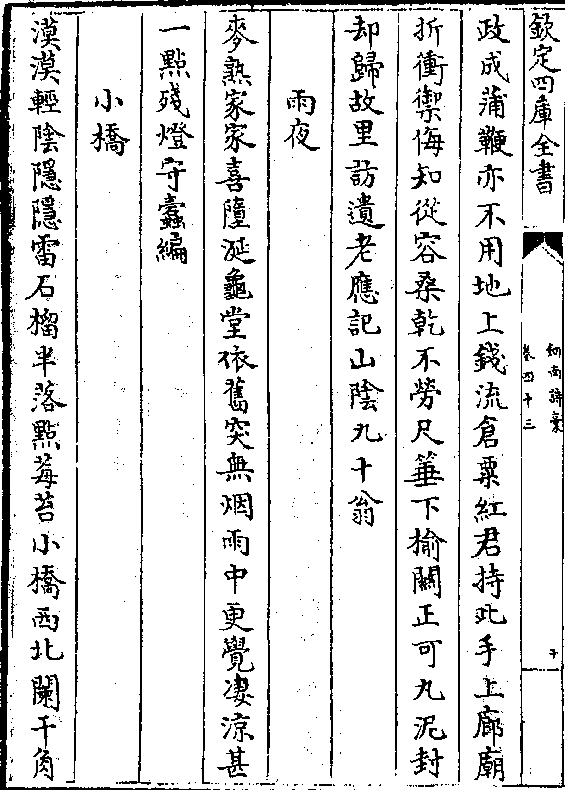 欽定四庫全書
劒南詩藁
卷四十三
政成蒲鞭亦不用地上錢流倉粟紅君持此手上廊廟
折衝禦侮知從容桑乾不勞尺箠下榆關正可丸泥封
却歸故里訪遺老應記山陰九十翁
雨夜
麥熟家家喜墮涎龜堂依舊突無烟雨中更覺凄涼甚
一點殘燈守蠹編
小橋
漠漠輕陰隠隠雷石榴半落點莓苔小橋西北闌干角